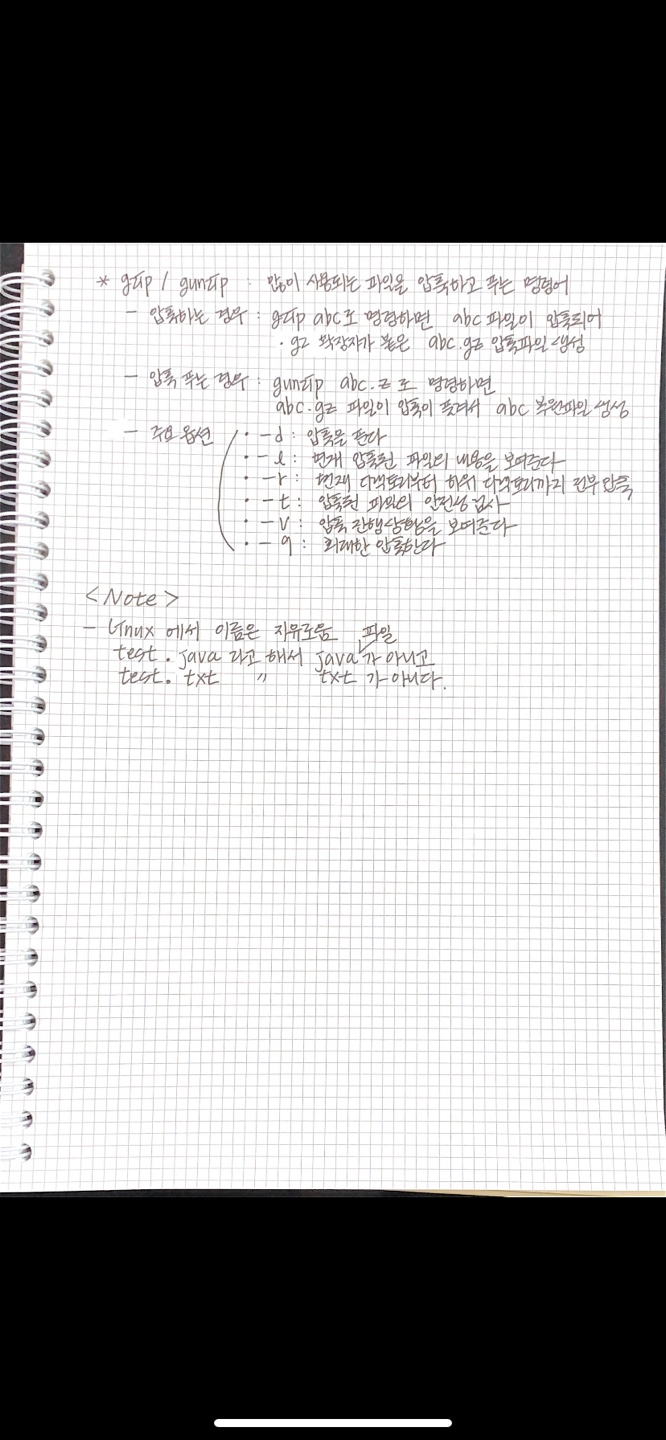 * gzip / gunzip : 많이 사용되는 파일을 압축하고 푸는 명령어
- 압축하는 경우 : gzip abc로 명령하면 abc 파일이 압축되어
.gz 확장자가 붙은 abc.gz 압축파일 생성
- 압축 푸는 경우 : gunzip abc.z 로 명령하면
abc.gz 파일이 압축이 풀려서 abc 복원파일 생성
- 주요 옵션 · -d : 압축을 푼다
· -l : 현재 압축된 파일의 내용을 보여준다
· -r : 현재 디렉토리부터 하위 디렉토리까지 전부 압축
· -t : 압축된 파일의 안전성 검사
· -v : 압축 진행상황을 보여준다
· -9 : 최대한 압축한다
<Note>
- Linux 에서 이름은 자유로움 파일
test.java 라고 해서 java가 아니고
test.txt 〃 txt 가 아니다.